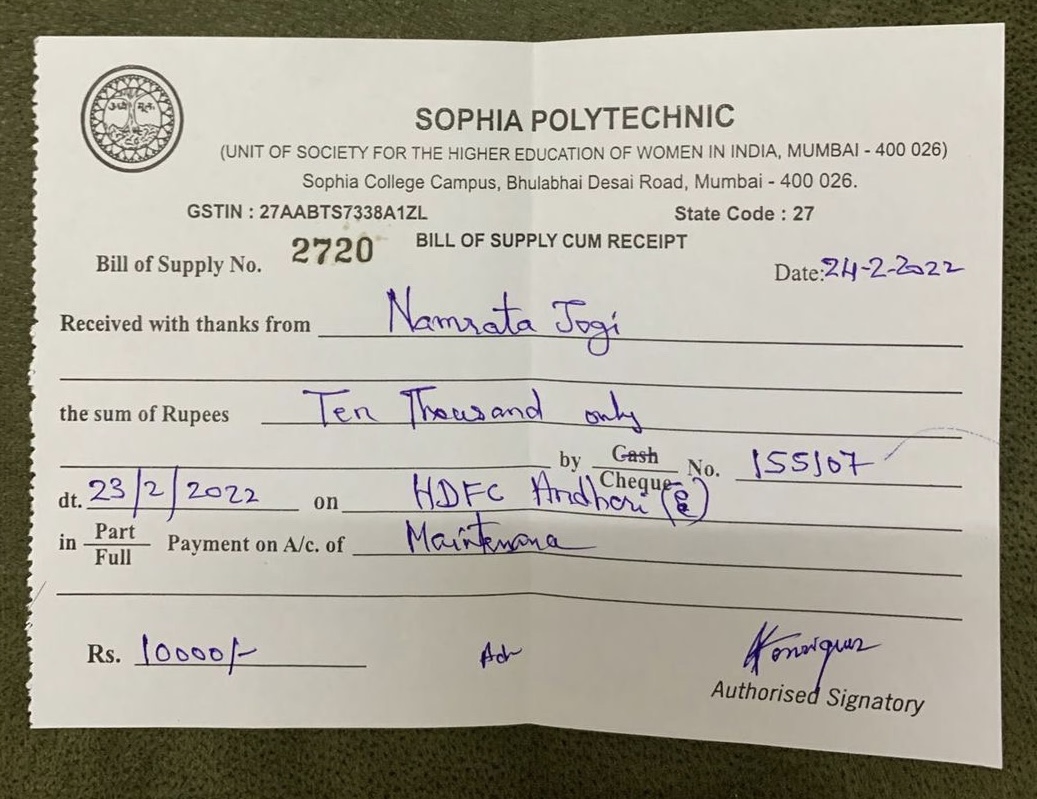 SOPHIA POLYTECHNIC
(UNIT OF SOCIETY FOR THE HIGHER EDUCATION OF WOMEN IN INDIA, MUMBAI - 400 026)
Sophia College Campus, Bhulabhai Desai Road, Mumbai - 400 026.
GSTIN : 27AABTS7338A1ZL State Code : 27
BILL OF SUPPLY CUM RECEIPT
Bill of Supply No. 2720 Date: 24-2-2022
Received with thanks from Namrata Jogi
the sum of Rupees Ten Thousand only
by Cash No. 155107
Cheque
dt. 23/2/2022 on HDFC Andheri (E)
in Part Payment on A/c. of
Full
Rs. 10000/-
Authorised Signatory